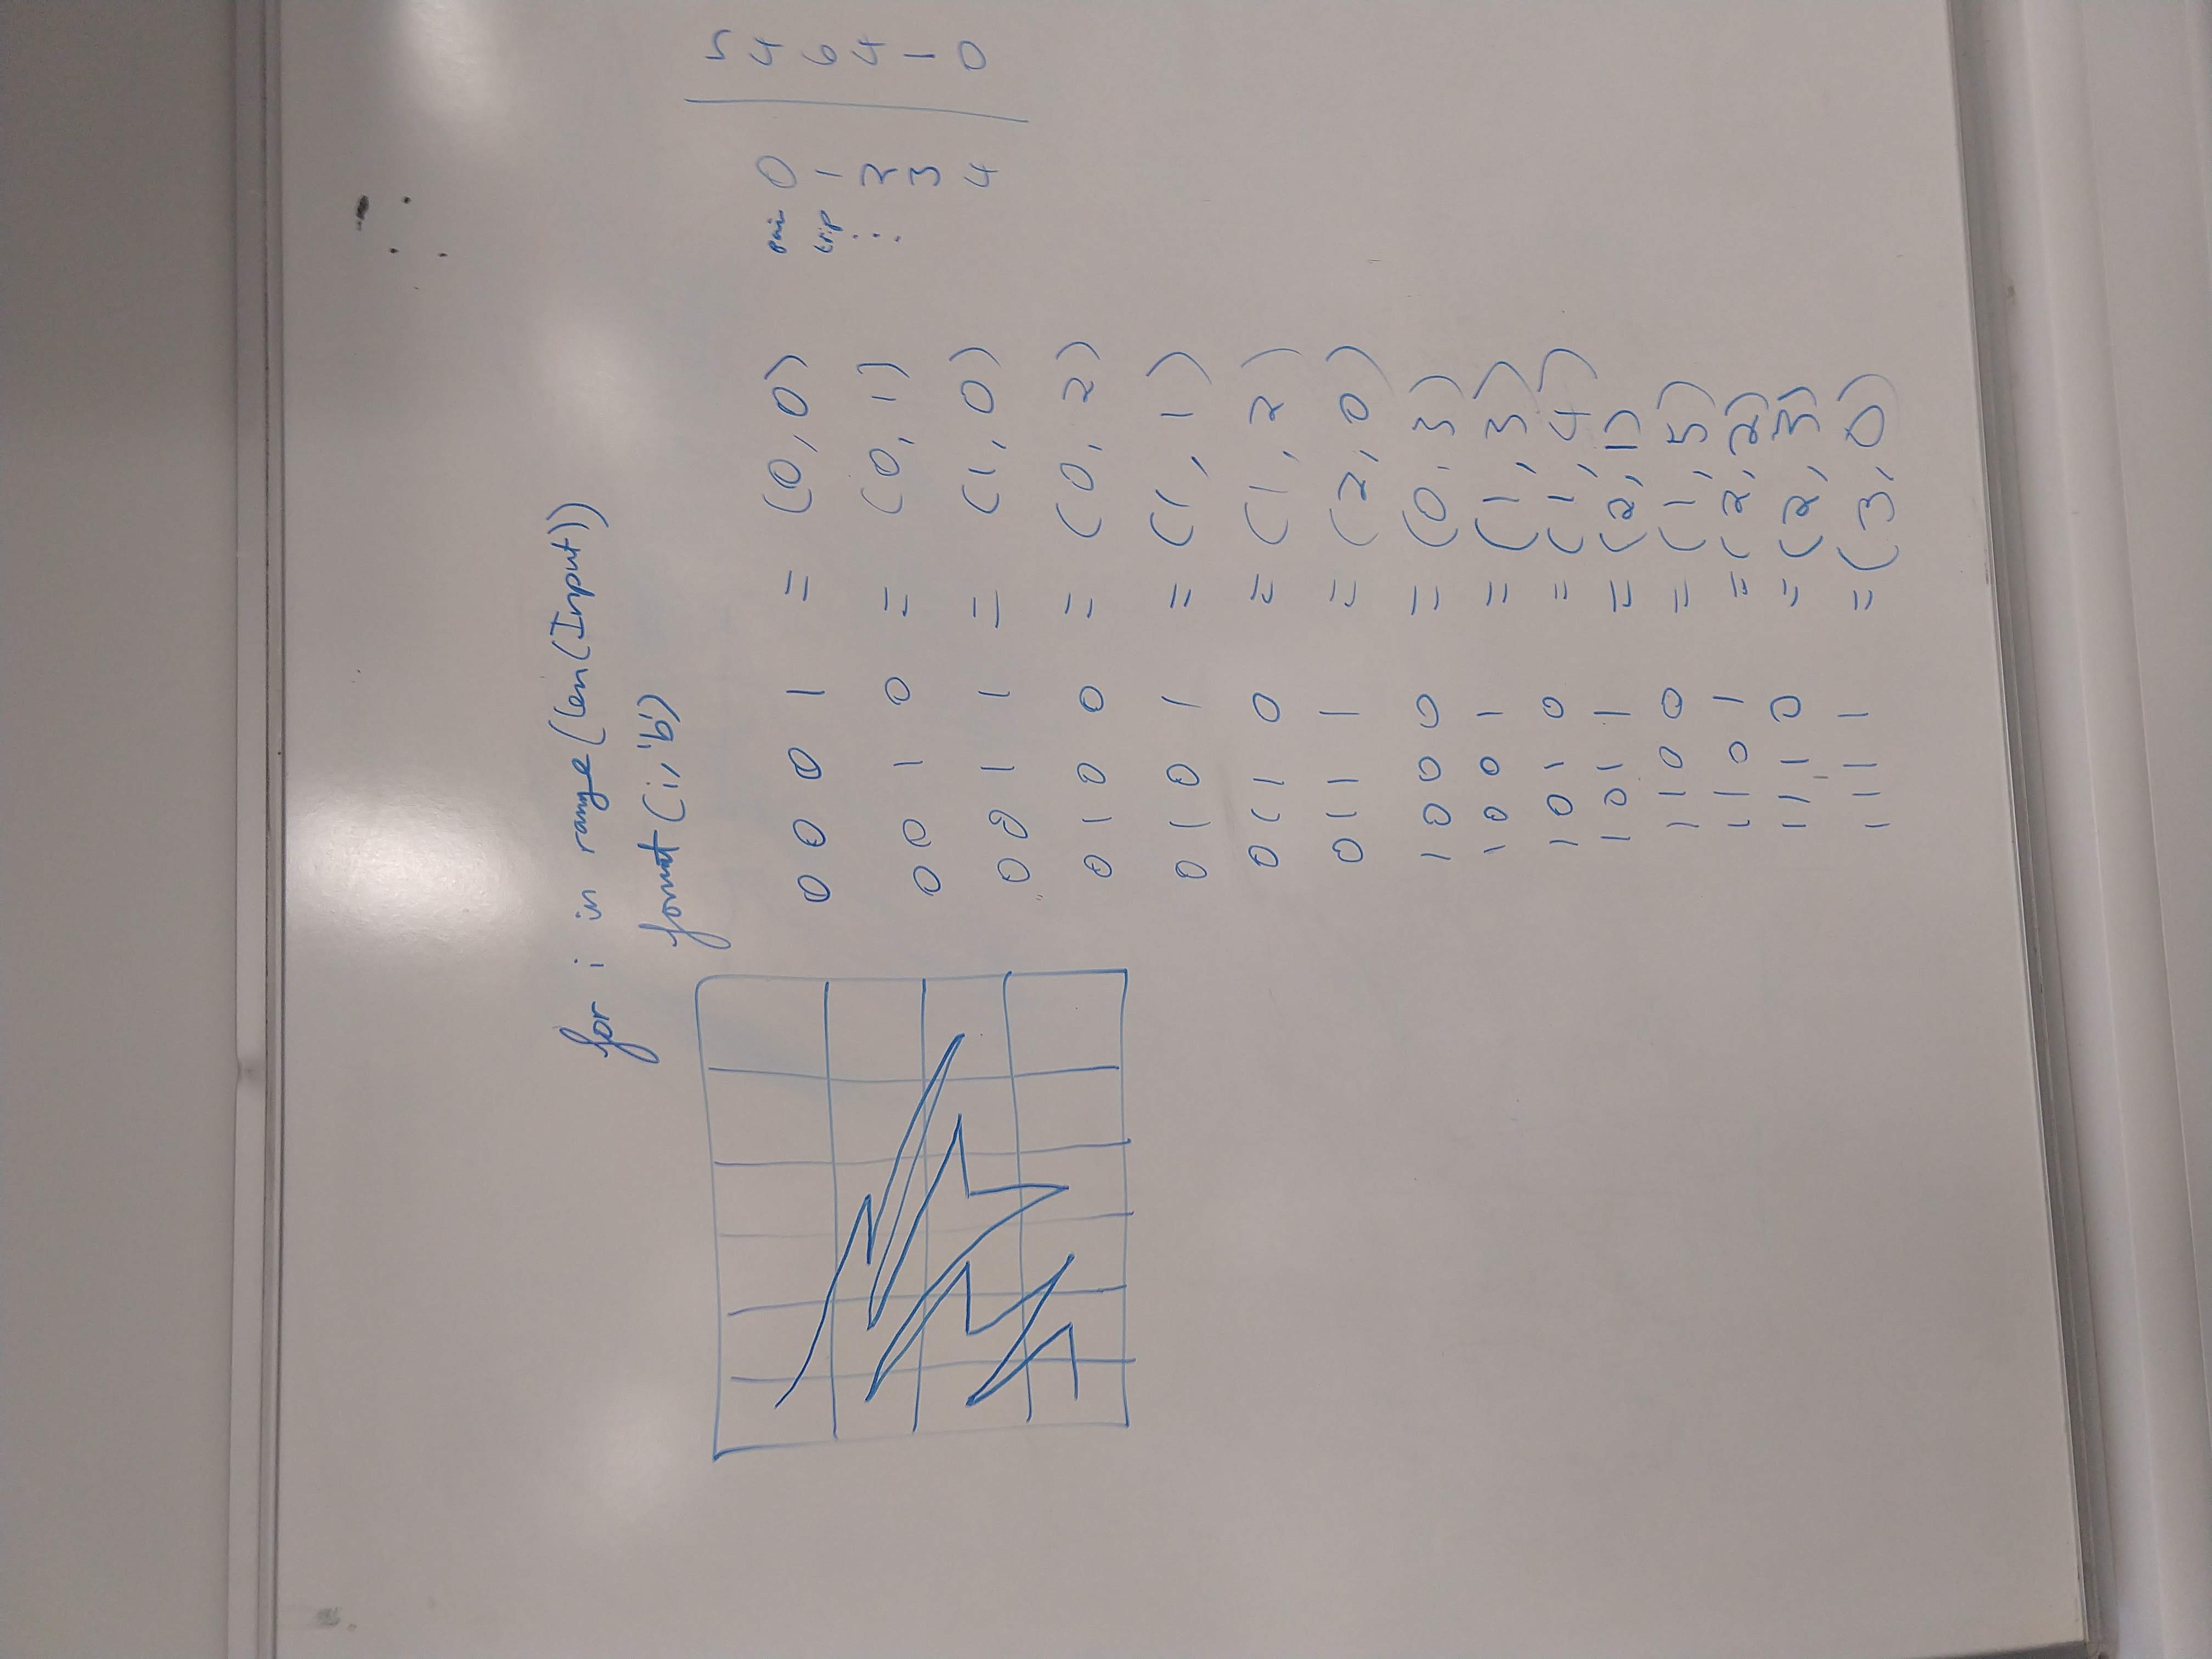 for i in range(len(Input))
format(i,'b')
0 0 0 1 = (0,0)
0 0 1 0 = (0,1)
0 0 1 1 = (1,0)
0 1 0 0 = (0,2)
0 1 0 1 = (1,1)
0 1 1 0 = (1,2)
0 1 1 1 = (2,0)
1 0 0 0 = (0,3)
1 0 0 1 = (1,3)
1 0 1 0 = (1,4)
1 0 1 1 = (2,1)
1 1 0 0 = (1,5)
1 1 0 1 = (2,2)
1 1 1 0 = (2,3)
1 1 1 1 = (3,0)
5
pair 0 4
trip 1 6
⋮ 2 4
3 1
4 0